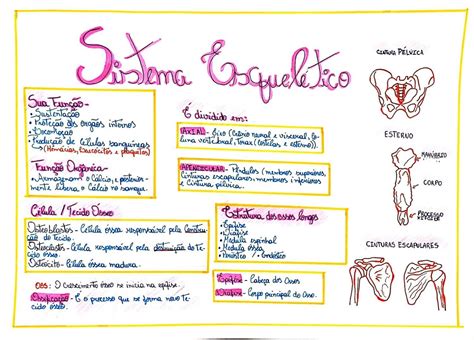 Sistema Esquelético
Sua Função -
- Sustentação
- Proteção dos orgãos internos
- Locomoção
- Produção de Células sanguíneas
(Hemácias, Leucócitos e plaquetas)
Função Orgânica -
- Armazenam o Cálcio, e posterior-
mente libera o Cálcio no sangue.
Célula / Tecido Ósseo
Osteoblastos - Célula responsável pela
do Tecido.
Osteoclastos - Célula responsável pela destruição do Te-
cido ósseo.
Osteócito - Célula óssea madura.
OBS: O Crescimento ósseo se inicia na epífise.
Ossificação - É o processo que se forma novo Te-
cido ósseo.
É dividido em:
AXIAL - Eixo (Crânio neural e visceral, Co-
luna vertebral, Tórax (costelas e esterno)).
APENDICULAR - Pêndulos (membros superiores,
Cinturas escapulares, membros inferiores
e Cintura pélvica.
Estrutura dos ossos longos
- Epífise
- Diáfise
- Medula espinhal
- Medula óssea
- Periósteo / Endósteo
Epífise - Cabeça dos Ossos
Diáfise - Corpo principal do Osso.
CINTURA PÉLVICA
ESTERNO
MANÚBRIO
CORPO
PROCESSO
CINTURAS ESCAPULARES